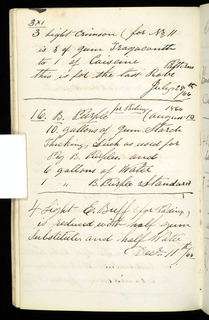 3 Light Crimson (for No 11
is 3 of gum Tragacanth
to 1 of Caiseine
this is for the last Robe
July 28th/60
16. B. Purple for Riding 1860 August 13
10. gallons of gum Starch
Thicking, such as used for
B. Purples. and
6 gallons of Water
1 " B. Purple Standard
4 Light C. Buff for
is reduced with half gum
Substitute and half Water
Decr 11th/60